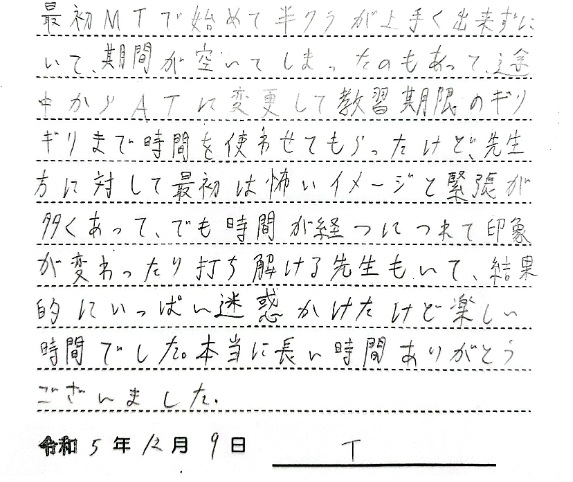 最初MTで始めて半クラが上手く出来ずに
いて、期間が空いてしまったのもあって、途
中からATに変更して教習期限のギリ
ギリまで時間を使わせてもらったけど、先生
方に対して最初は怖いイメージと緊張が
多くあって、でも時間が経つにつれて印象
が変わったり打ち解ける先生もいて、結果
的にいっぱい迷惑かけたけど楽しい
時間でした。本当に長い時間ありがとう
ございました。
令和5年12月9日 T